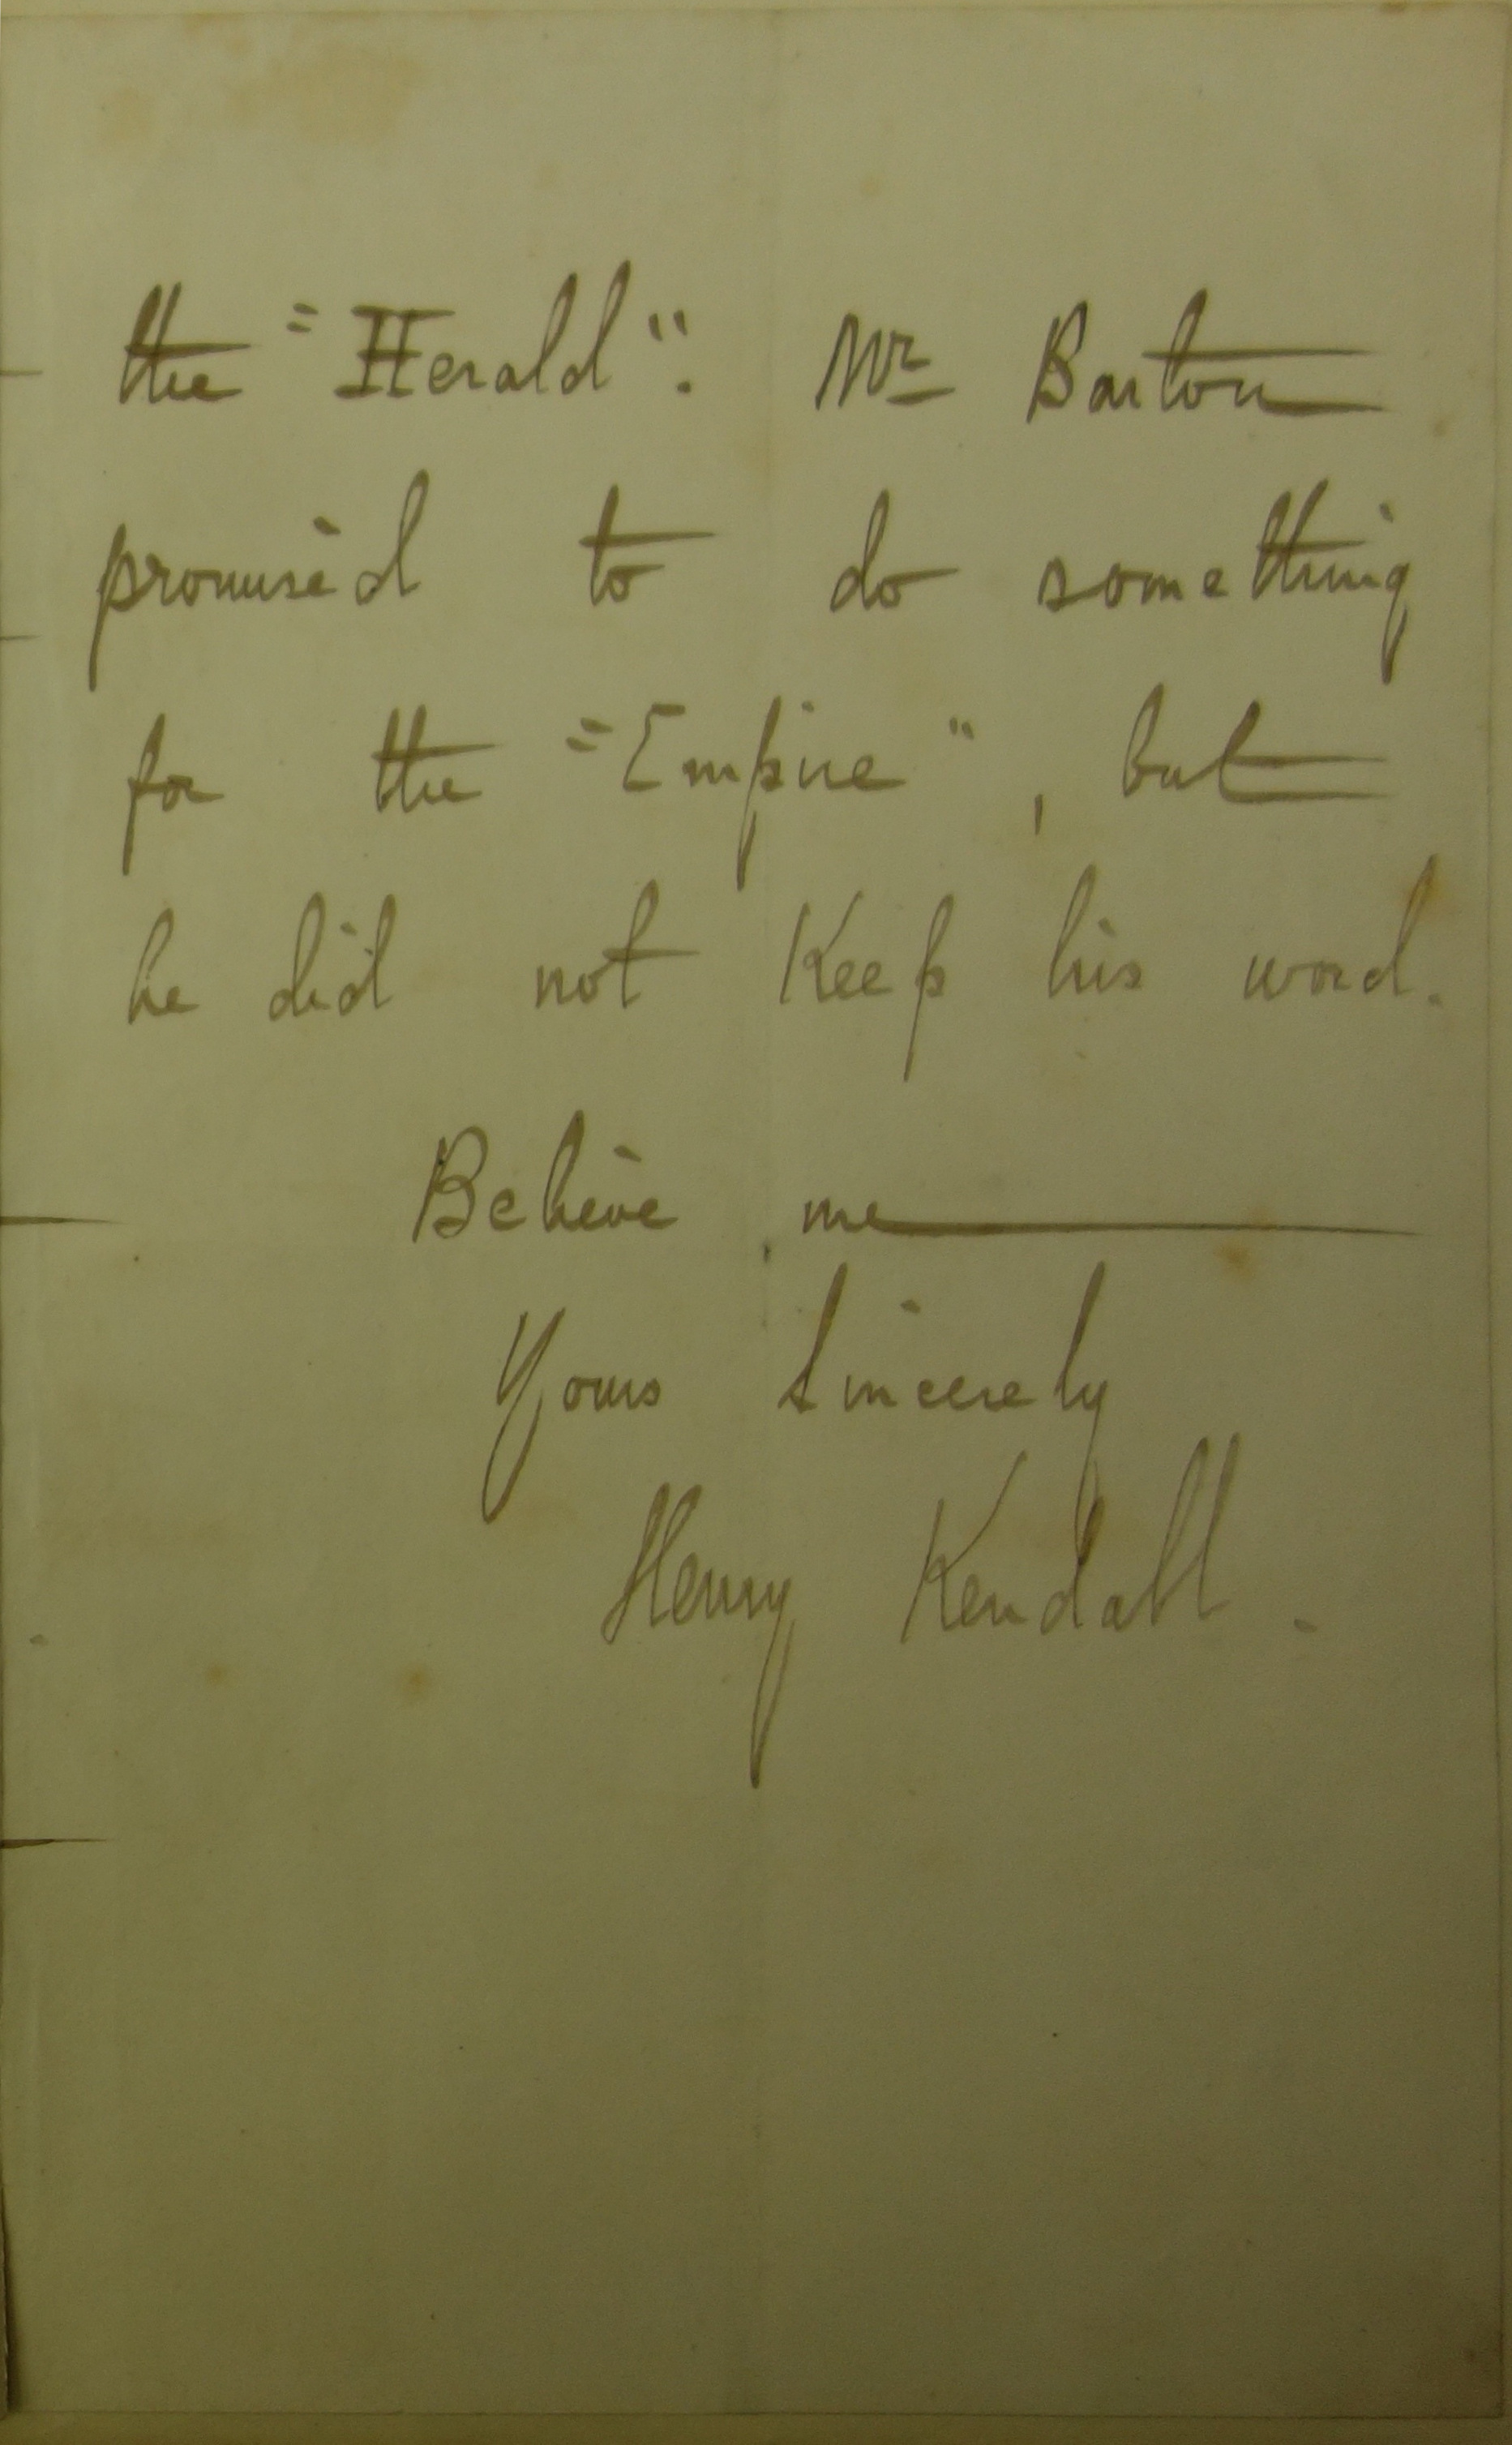 the "Herald". Mr Barton
promised to do something
for the "Empire", but
he did not Keep his word.
Believe me
Yours Sincerely
Henry Kendall.